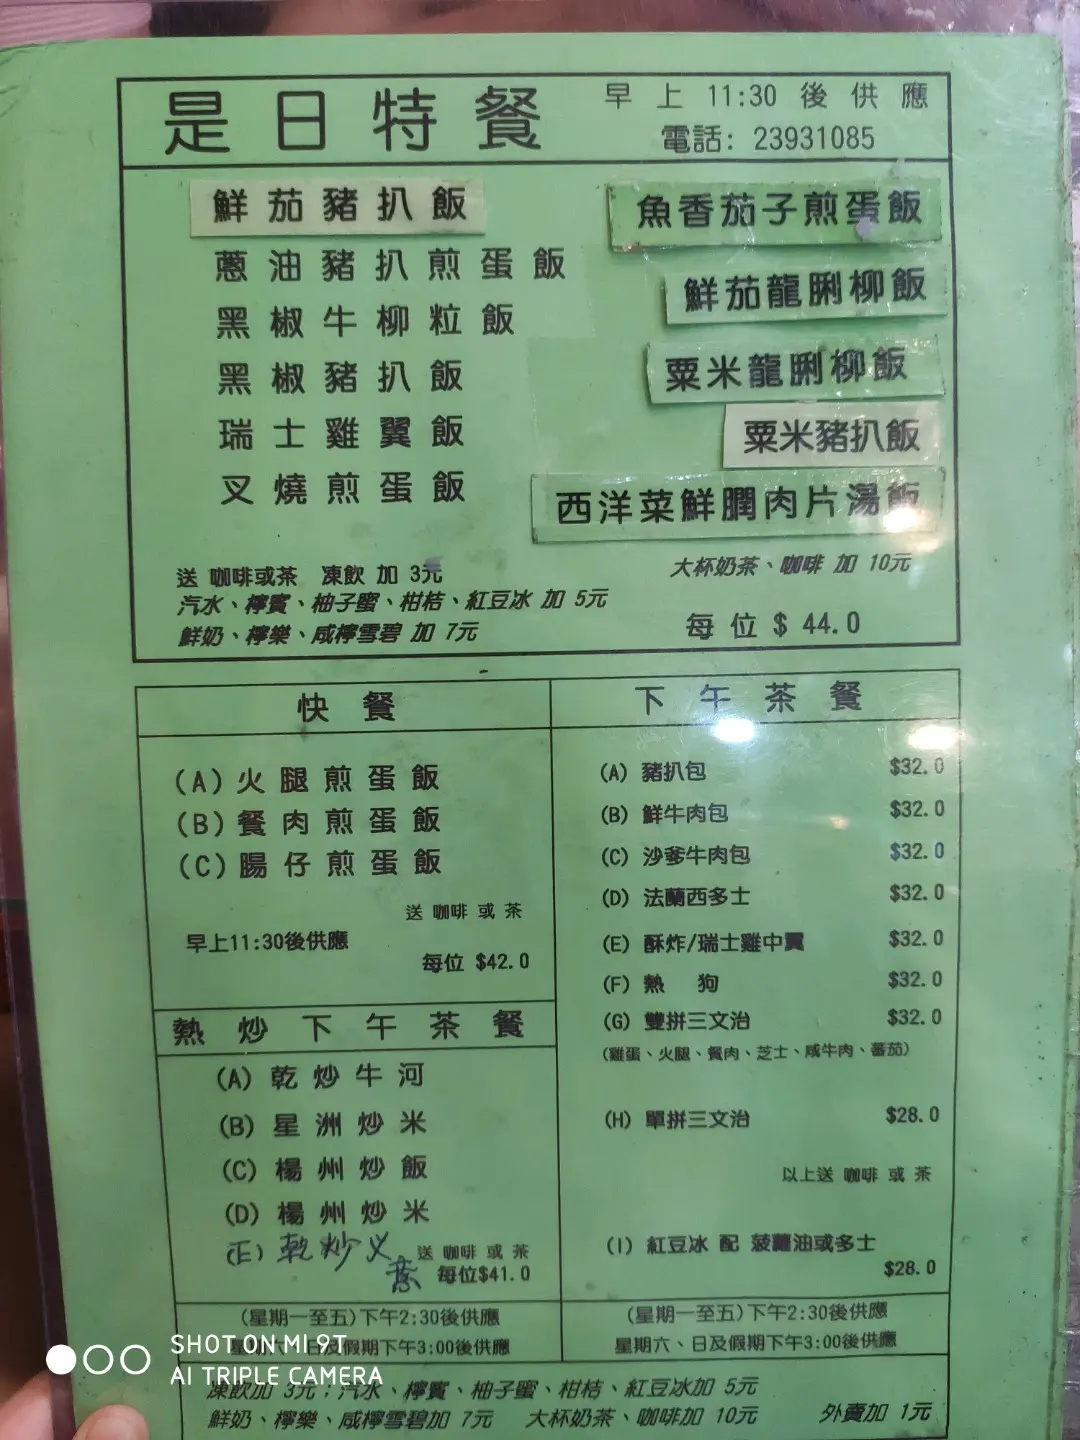 是日特餐
早上 11:30 後供應
電話: 23931085
鮮茄豬扒飯
蔥油豬扒煎蛋飯
黑椒牛柳粒飯
黑椒豬扒飯
瑞士雞翼飯
叉燒煎蛋飯
魚香茄子煎蛋飯
鮮茄龍脷柳飯
粟米龍脷柳飯
粟米豬扒飯
西洋菜鮮膶肉片湯飯
送 咖啡或茶 凍飲 加 3元
汽水、檸賓、柚子蜜、柑桔、紅豆冰 加 5元
鮮奶、檸樂、咸檸雪碧 加 7元
大杯奶茶、咖啡 加 10元
每位 $ 44.0
快餐
(A) 火腿煎蛋飯
(B) 餐肉煎蛋飯
(C) 腸仔煎蛋飯
送 咖啡 或 茶
早上11:30後供應
每位 $42.0
熱炒下午茶餐
(A) 乾炒牛河
(B) 星洲炒米
(C) 楊州炒飯
(D) 楊州炒米
(E) 乾炒义
送 咖啡 或 茶
每位$41.0
(星期一至五)下午2:30後供應
星期六、日及假期下午3:00後供應
下午茶餐
(A) 豬扒包 $32.0
(B) 鮮牛肉包 $32.0
(C) 沙爹牛肉包 $32.0
(D) 法蘭西多士 $32.0
(E) 酥炸/瑞士雞中翼 $32.0
(F) 熱 狗 $32.0
(G) 雙拼三文治 $32.0
(雞蛋、火腿、餐肉、芝士、咸牛肉、蕃茄)
(H) 單拼三文治 $28.0
以上送 咖啡 或 茶
(I) 紅豆冰 配 菠蘿油或多士
$28.0
(星期一至五)下午2:30後供應
星期六、日及假期下午3:00後供應
凍飲加 3元；汽水、檸賓、柚子蜜、柑桔、紅豆冰加 5元
鮮奶、檸樂、咸檸雪碧加 7元 大杯奶茶、咖啡加 10元 外賣加 1元
SHOT ON MI 9T
AI TRIPLE CAMERA